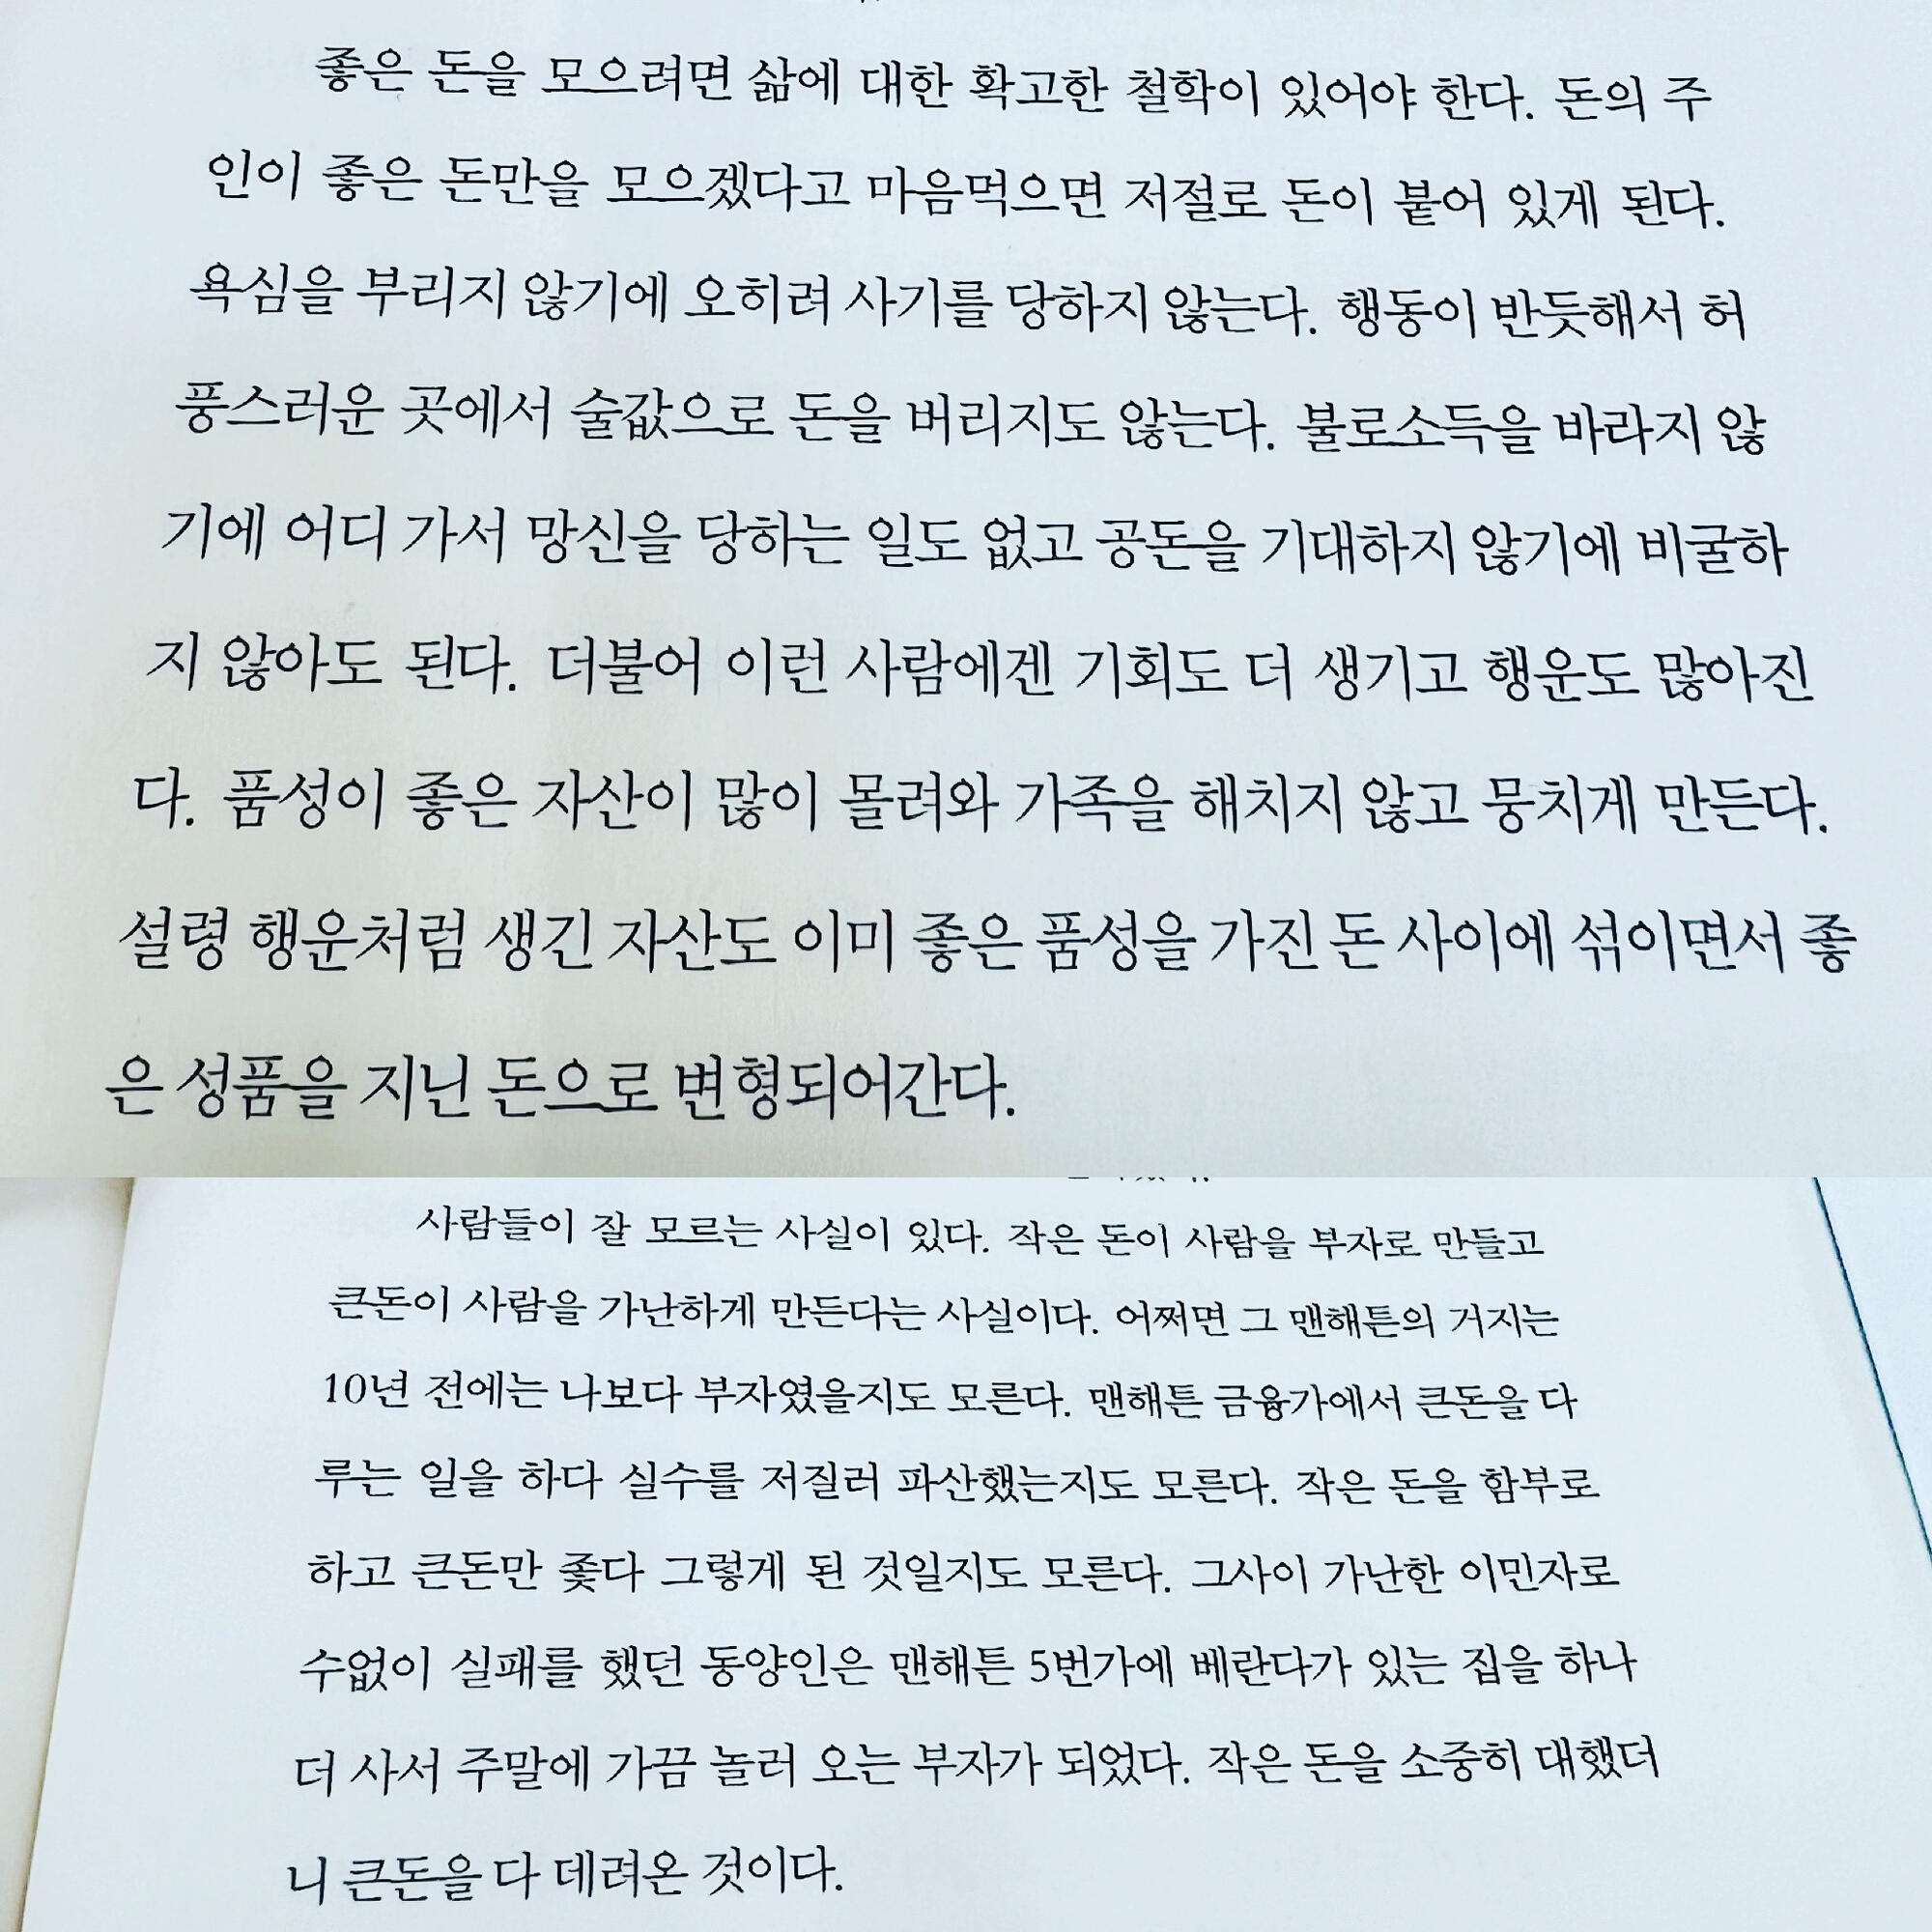 좋은 돈을 모으려면 삶에 대한 확고한 철학이 있어야 한다. 돈의 주
인이 좋은 돈만을 모으겠다고 마음먹으면 저절로 돈이 붙어 있게 된다.
욕심을 부리지 않기에 오히려 사기를 당하지 않는다. 행동이 반듯해서 허
풍스러운 곳에서 술값으로 돈을 버리지도 않는다. 불로소득을 바라지 않
기에 어디 가서 망신을 당하는 일도 없고 공돈을 기대하지 않기에 비굴하
지 않아도 된다. 더불어 이런 사람에겐 기회도 더 생기고 행운도 많아진
다. 품성이 좋은 자산이 많이 몰려와 가족을 해치지 않고 뭉치게 만든다.
설령 행운처럼 생긴 자산도 이미 좋은 품성을 가진 돈 사이에 섞이면서 좋
은 성품을 지닌 돈으로 변형되어간다.
사람들이 잘 모르는 사실이 있다. 작은 돈이 사람을 부자로 만들고
큰돈이 사람을 가난하게 만든다는 사실이다. 어쩌면 그 맨해튼의 거지는
10년 전에는 나보다 부자였을지도 모른다. 맨해튼 금융가에서 큰돈을 다
루는 일을 하다 실수를 저질러 파산했는지도 모른다. 작은 돈을 함부로
하고 큰돈만 좇다 그렇게 된 것일지도 모른다. 그사이 가난한 이민자로
수없이 실패를 했던 동양인은 맨해튼 5번가에 베란다가 있는 집을 하나
더 사서 주말에 가끔 놀러 오는 부자가 되었다. 작은 돈을 소중히 대했더
니 큰돈을 다 데려온 것이다.